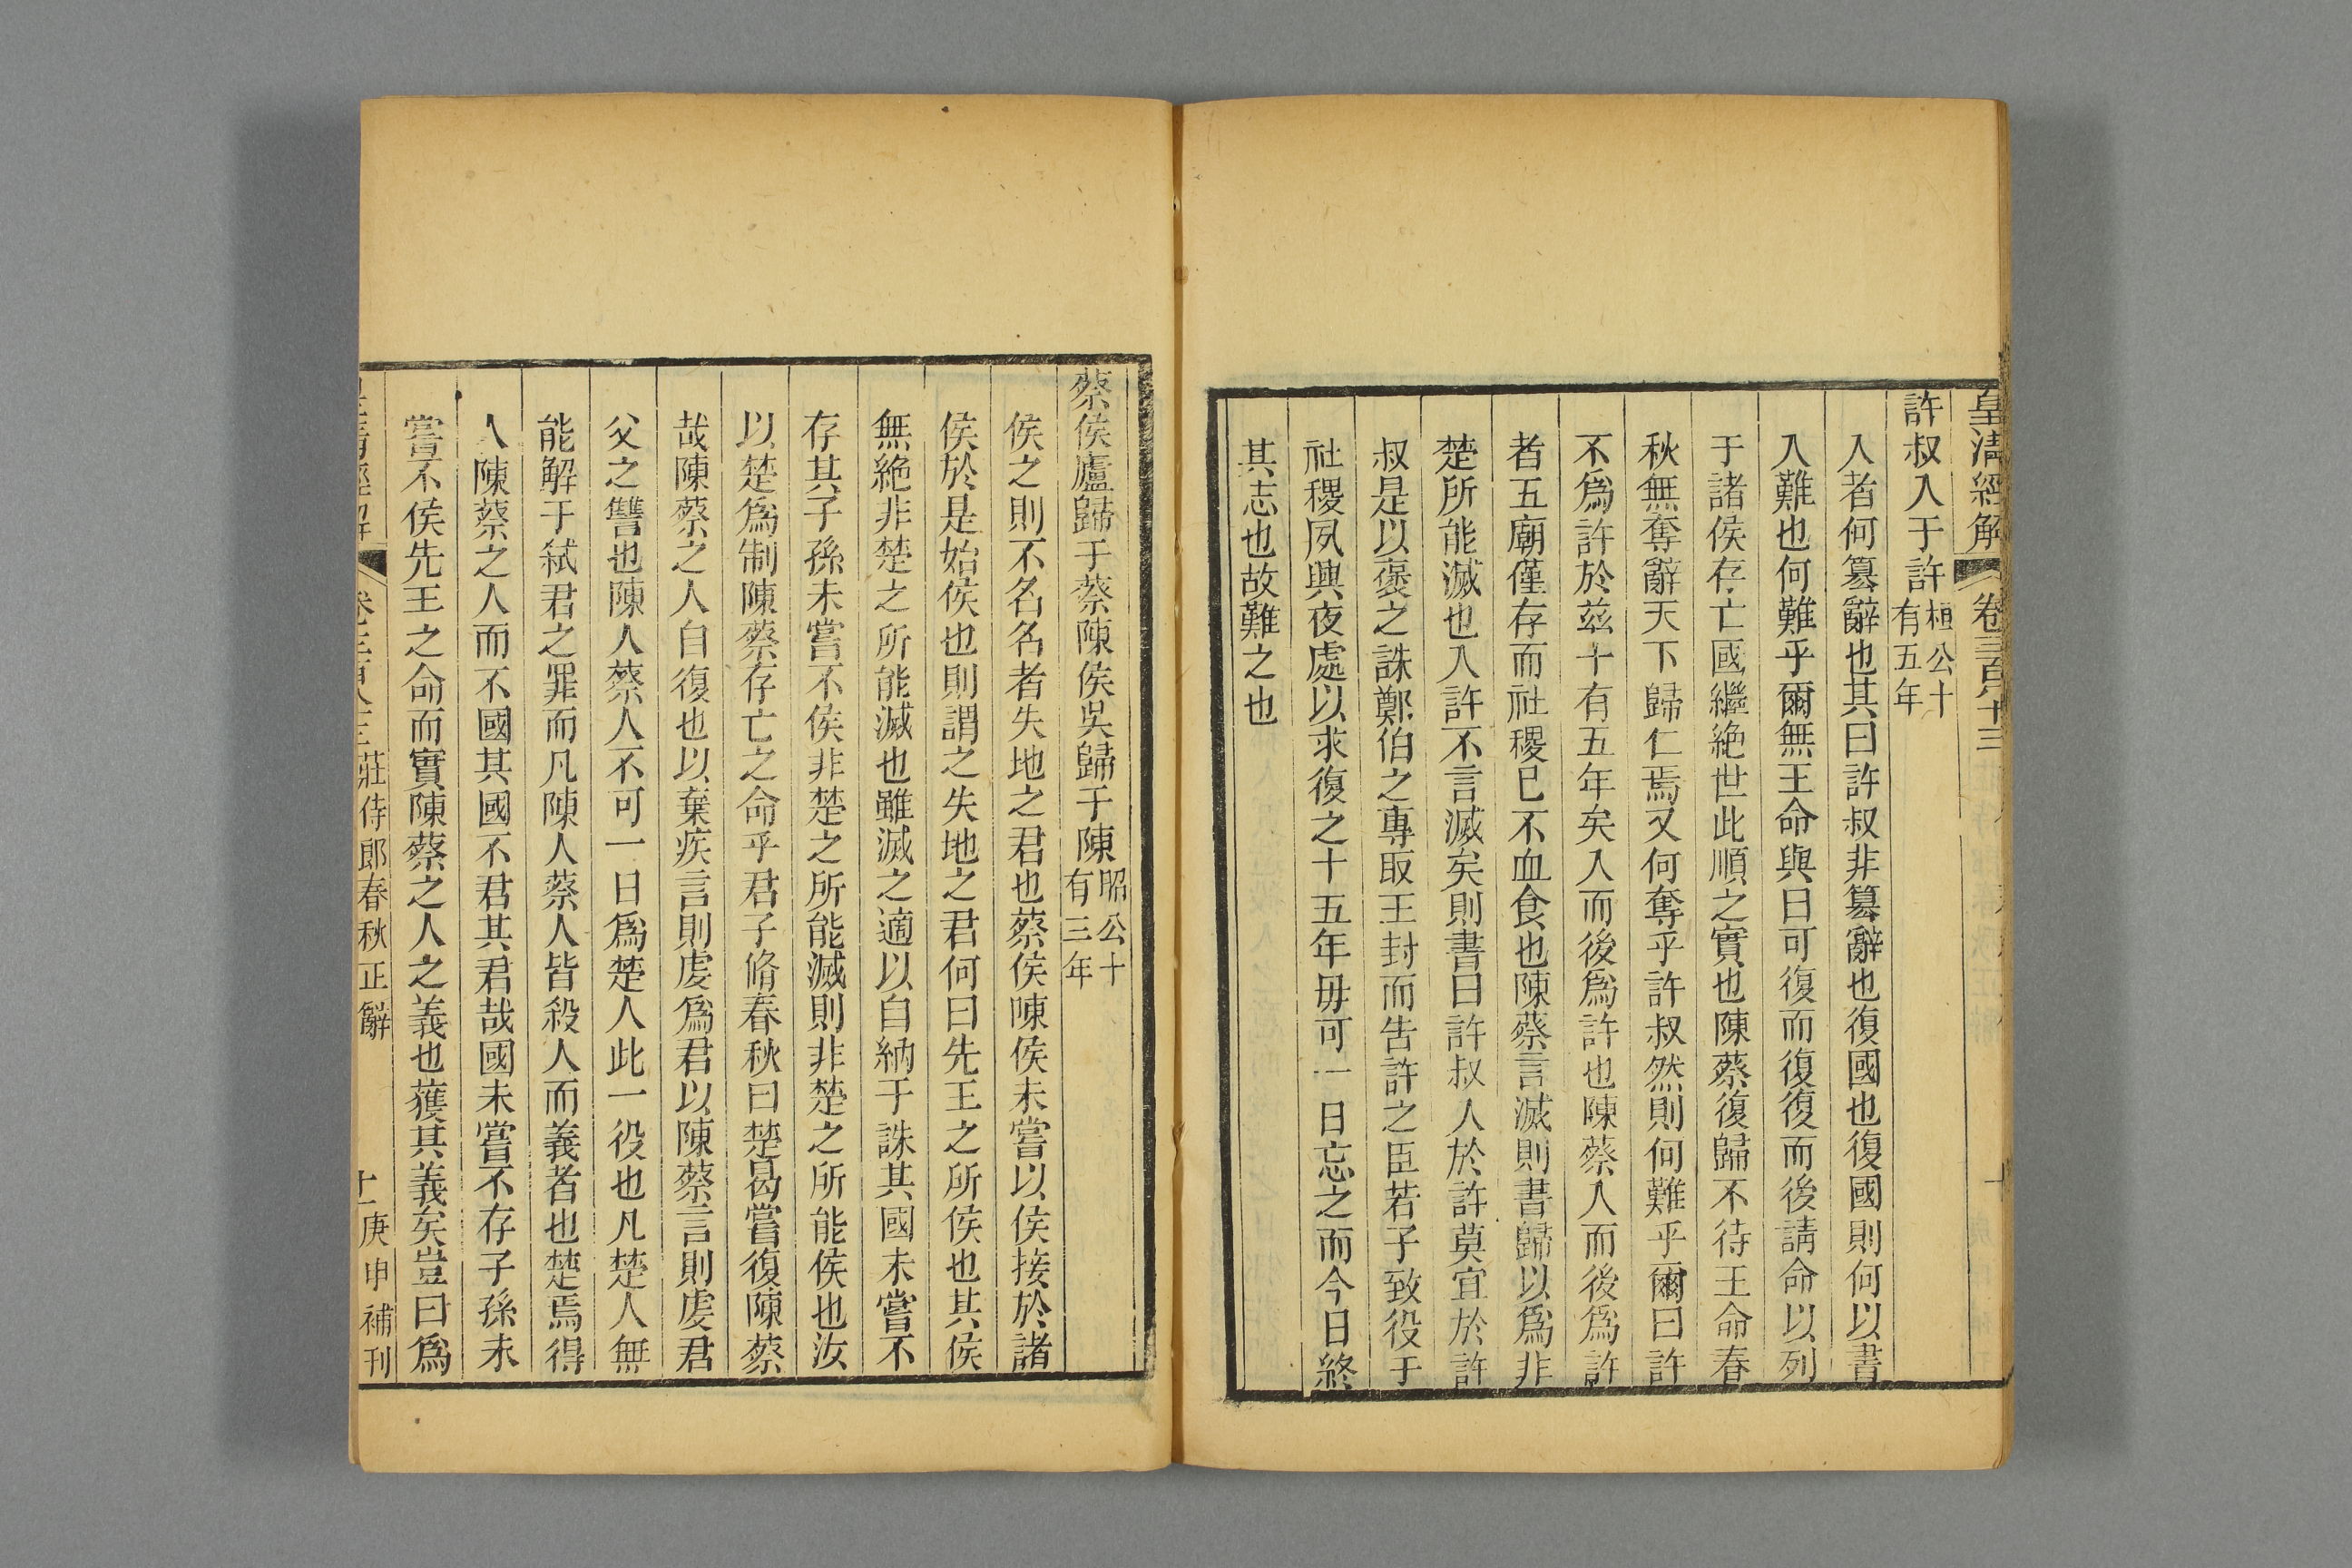 皇清經解 卷三百八十三
許叔入于許桓公十有五年
入者何篡辭也其曰許叔非篡辭也復國也復國則何以書
入難也何難乎爾無王命與曰可復而復復而後請命以列
于諸侯存亡國繼絶世此順之實也陳蔡復歸不待王命春
秋無奪辭天下歸仁焉又何奪乎許叔然則何難乎爾曰許
不爲許於茲十有五年矣入而後爲許也陳蔡入而後爲許
者五廟僅存而社稷已不血食也陳蔡言滅則書歸以爲非
楚所能滅也入許不言滅矣則書曰許叔入於許莫宜於許
叔是以褒之誅鄭伯之專取王封而告許之臣若子致役于
社稷夙興夜處以求復之十五年毋可一日忘之而今日終
其志也故難之也
蔡侯廬歸于蔡陳侯吳歸于陳昭公十有三年
侯之則不名名者失地之君也蔡侯陳侯未嘗以侯接於諸
侯於是始侯也則謂之失地之君何曰先王之所侯也其侯
無絶非楚之所能滅也雖滅之適以自納于誅其國未嘗不
存其子孫未嘗不侯非楚之所能滅則非楚之所能侯也汝
以楚爲制陳蔡存亡之命乎君子脩春秋曰楚曷嘗復陳蔡
哉陳蔡之人自復也以棄疾言則虔爲君以陳蔡言則虔君
父之讐也陳人蔡人不可一日爲楚人此一役也凡楚人無
能解于弑君之罪而凡陳人蔡人皆殺人而義者也楚焉得
人陳蔡之人而不國其國不君其君哉國未嘗不存子孫未
嘗不侯先王之命而實陳蔡之人之義也獲其義矣豈曰爲
莊侍郎春秋正辭 十一 庚申補刊